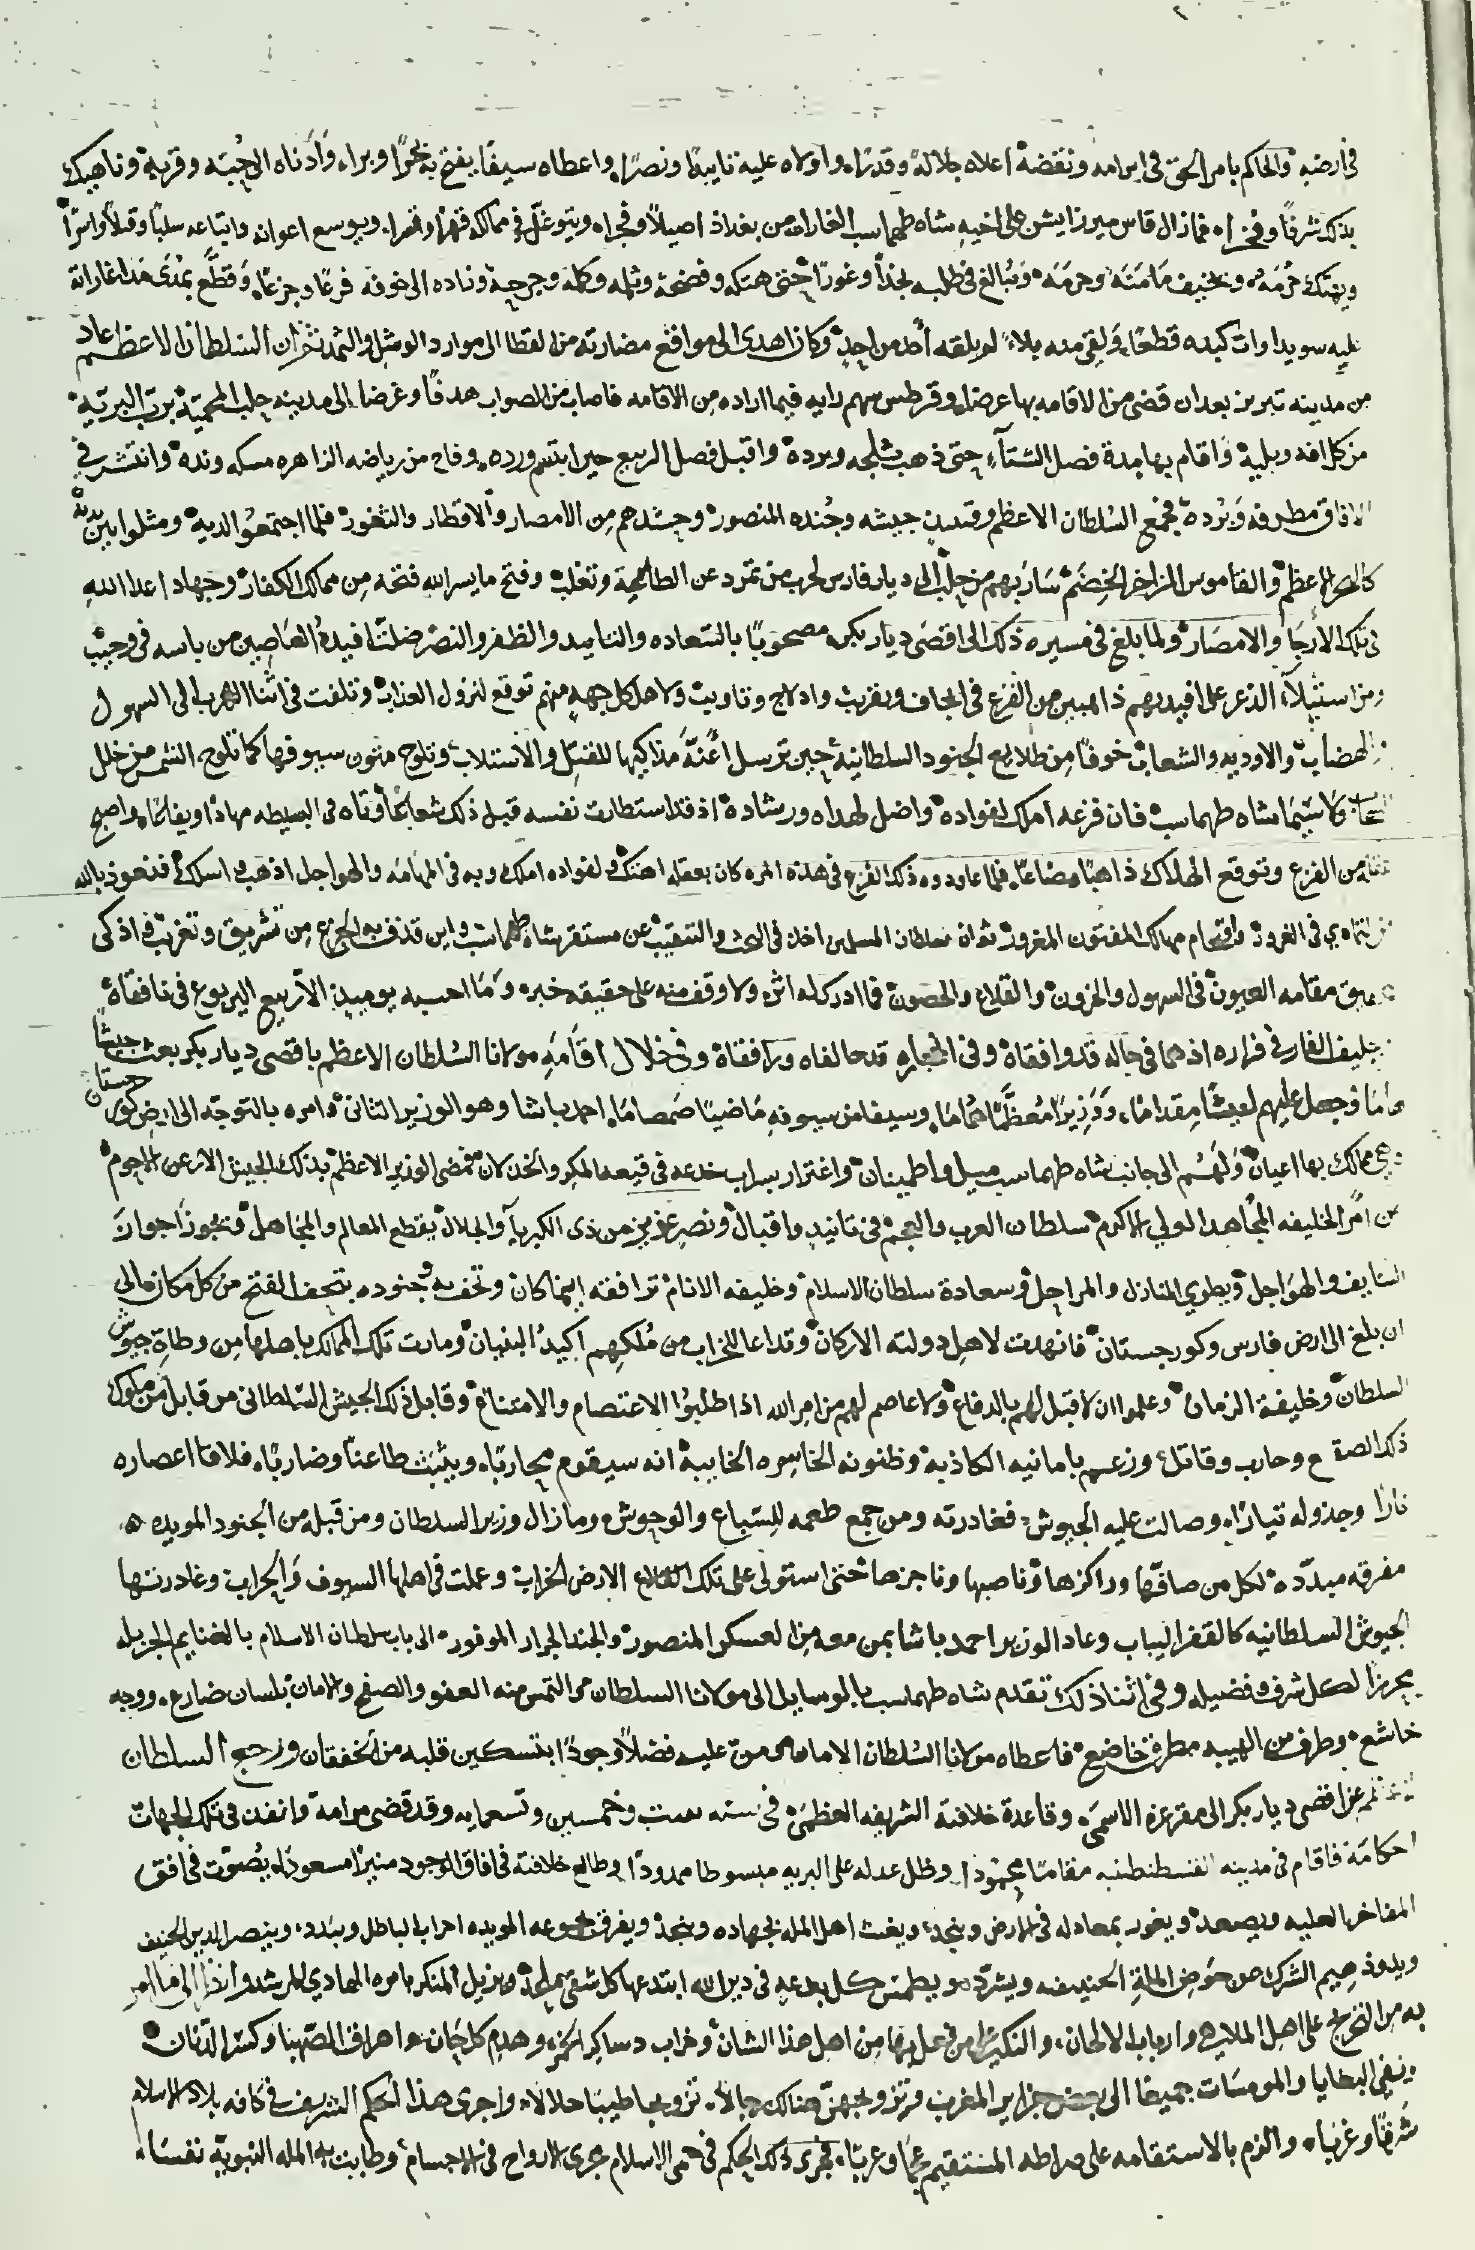 في ارضه والحاكم بامر الحق في ابرامه ونقضه اعلاه جلالة وقدرا واولاه عليه تاييدا ونصرا واعطاه سيفا يفتح به بحرا وبرا وادناه الى جنبه وقربه وناهيك
بذلك شرفا وفخرا فما زال القاس ميرزا يشن على اخيه شاه طهماسب الغارات من بغداد اصيلا وفجرا ويتوغل في ممالكه قهرا ويوسع اعوانه واتباعه سلبا وقتلا واسرا
ويهتك حرمه ويخيف مامنه وحرمه ويبالغ في طلبه نجدا وغورا حتى هتكه وفضحه وثله وكله وجرحه وزاده الى خوفه فزعا وجزعا وقطع بمدى غاراته
عليه سويداوات كبده قطعا ولقي منه بلاء لم يلقه من احد وكان اهدى الى مواقع مضارته من القطا الى موارد الوشل والثمد ثم ان السلطان الاعظم عاد
من مدينه تبريز بعد ان قضى من الاقامه بها غرضا وقرطس سهم رايه فيما اراده من الاقامه فاصاب من الصواب هدفا وغرضا الى مدينه حلب المحمية برب البرية
من كل افه وبلية واقام بها مدة فصل الشتاء حتى ذهب ثلجه وبرده واقبل فصل الربيع حين ابتسم ورده وفاح من رياضه الزاهره مسكه ونده وانتشر في
الافاق مطرفه وبرده فجمع السلطان الاعظم جيشه وجنده المنصور وحشدهم من الامصار والاقطار والثغور فلما اجتمعوا لديه ومثلوا بين يديه
كالبحر الاعظم والقاموس الزاخر الخضم سار بهم من حلب الى ديار فارس لحرب من تمرد عن الطاعة وتغلب وفتح ما يسر الله فتحه من ممالك الكفار وجهاد اعدا الله
في تلك الارجا والامصار ولما بلغ في مسيره ذلك الى اقصى ديار بكر مصحوبا بالسعاده والتاييد والظفر والنصر ضلت افيدة العاصين من باسه في وجيب
ومن استيلاء الذعر على افيدتهم ذاهبين من الفزع في ايجاف وتقريب وادلاج وتاويب ولاهل كل جهه منهم توقع لنزول العذاب وتلفت في اثنا الهرب الى السهول
والهضاب والاوديه والشعاب خوفا من طلايع الجنود السلطانية حين ترسل اعنة مذاكيها للقتل والاستلاب وتلوح متون سيوفها كما تلوح الشمس من خلل
السحاب ولا سيما شاه طهماسب فان فزعه املك لفواده واضل لهداه ورشاده اذ قد استطارت نفسه قبل ذلك شعاعا وتاه في البسيطه مهادا ويفاعا واصبح
عقله من الفزع وتوقع الهلاك ذاهبا مضاعا فلما عاوده ذلك الفزع في هذه المره كان بعقله اهتك ولفواده املك وبه في المهامه والهواجل اذهب واسلك فنعوذ بالله
من التمادي في الغرور واقتحام مهالك المفتون المغرور ثم ان سلطان المسلمين اخذ في البحث والتنقيب عن مستقر شاه طهماسب واين قذف به الجزع من تشريق وتغريب فاذكى
مقامه العيون في السهول والحزون والقلاع والحصون فما ادرك له اثر ولا وقف منه على حقيقه خبر وما احسبه يوميذ الا ربيع اليربوع في نافقاه
حليف الفار في فراره اذ هما في حاله قد وافقاه وفي المجاره قد حالفاه ورافقاه وفي خلال اقامة مولانا السلطان الاعظم باقصى ديار بكر بعث جيشا
وجعل عليهم ليثا مقداما ووزيرا معظما هماما وسيفا من سيوفه ماضيا صمصاما احمد باشا وهو الوزير الثاني وامره بالتوجه الى ارض كورجستان
وهي ممالك بها اعيان ولهم الى جانب شاه طهماسب ميل واطمينان واغترار بسراب خدعه في قيعه المكر والخذلان فمضى الوزير الاعظم بذلك الجيش الارعن
عن امر الخليفه المجاهد الولي الاكرم سلطان العرب والعجم في تاييد واقبال ونصر عزيز من ذي الكبرياء والجلال يقطع المعالم والمجاهل ويجوز اجواز
التنايف والهواجل ويطوي المنازل والمراحل وسعادة سلطان الاسلام وخليفه الانام ترافقه اينما كان وتحف به وجنوده بتحف الفتح من كل مكان الى
ان بلغ الى ارض فارس وكورجستان فانهدت لاهل دولته الاركان وتداعا للخراب من ملكهم اكيد البنيان ومارت تلك الممالك باهلها من وطاة جيوش
السلطان وخليفة الزمان وعلموا ان لا قبل لهم بالدفاع ولا عاصم لهم من امر الله اذا طلبوا الاعتصام والامتناع وقابل ذلك الجيش السلطاني من قابل من ملوك
ذلك الصقع وحارب وقاتل وزعم بامانيه الكاذبه وظنونه الخاسره الخايبة انه سيقوم محاربا ويثبت طاعنا وضاربا فلاقا اعصاره
نارا وجدوله تيارا وصالت عليه الجيوش فغادرته ومن جمع طعمه للسباع والوحوش وما زال وزير السلطان ومن قبله من الجنود المويده
مفرقه مبدده لكل من صافها وراكزها وناصبها وناجزها حتى استولى على تلك القلاع الارض الخراب وعملت في اهلها السيوف والحراب وغادرتها
الجيوش السلطانيه كالقفر اليباب وعاد الوزير احمد باشا بمن معه من العسكر المنصور والجند الجرار الموفور الى باب سلطان الاسلام بالغنايم الجزيله
محرزا لكل شرف وفضيله وفي اثنا ذلك تقدم شاه طهماسب بالوسايل الى مولانا السلطان والتمس منه العفو والصفح والامان بلسان ضارع ووجه
خاشع وطرف من الهيبه مطرق خاضع فاعطاه مولانا السلطان الامان ومن عليه فضلا وجودا بتسكين قلبه من الخفقان ورجع السلطان
الاعظم عن اقصى ديار بكر الى مقر عزه الاسمى وقاعدة خلافته الشريفه العظمى في سنه ست وخمسين وتسعمايه وقد قضى مرامه وانفذ في تلك الجهات
احكامه فاقام في مدينه القسطنطينيه مقاما محمودا وظل عدله على البريه مبسوطا ممدودا وطالع خلافته في افاق الوجود منيرا مسعودا يصوب في افق
المفاخر العليه ويصعد ويغور بمعادله في الارض وينجد ويغيث اهل المله بجهاده وينجد ويفرق بجموعه المويده احزاب الباطل ويبدد وينصر الدين الحنيف
ويذود هيم الشرك عن حوض الملة الحنيفيه ويشرد ويطمس كل بدعه في دين الله ابتدعها كل شقي ملحد ويزيل المنكر بامره الهادي المرشد وانظر الى ما امر
به من التحريج على اهل الملاهي وارباب الالحان والنكير على من عمل بها من اهل هذا الشان وخراب دساكر الخمر وهدم كل حان واهراق الصهبا وكسر الدنان
ونفي البغايا والمومسات جميعا الى بعض جزاير المغرب وتزويجهن هنالك رجالا تزويجا طيبا حلالا واجرى هذا الحكم الشريف في كافه بلاد الاسلام
شرقا وغربا والزم بالاستقامه على صراطه المستقيم عجما وعربا فجرى ذلك الحكم في حمى الاسلام مجرى الارواح في الاجسام وطابت به المله النبوية نفسا